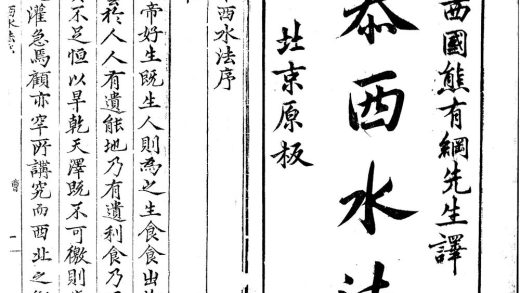 西國熊有綱先生譯
泰西水法
北京原板
西水法序
帝好生既生人則為之生食食出
於人人有遺能地乃有遺利食乃
不足恒以旱乾天澤既不可徼則
灌急焉顧亦罕所講究而西北之
西水法